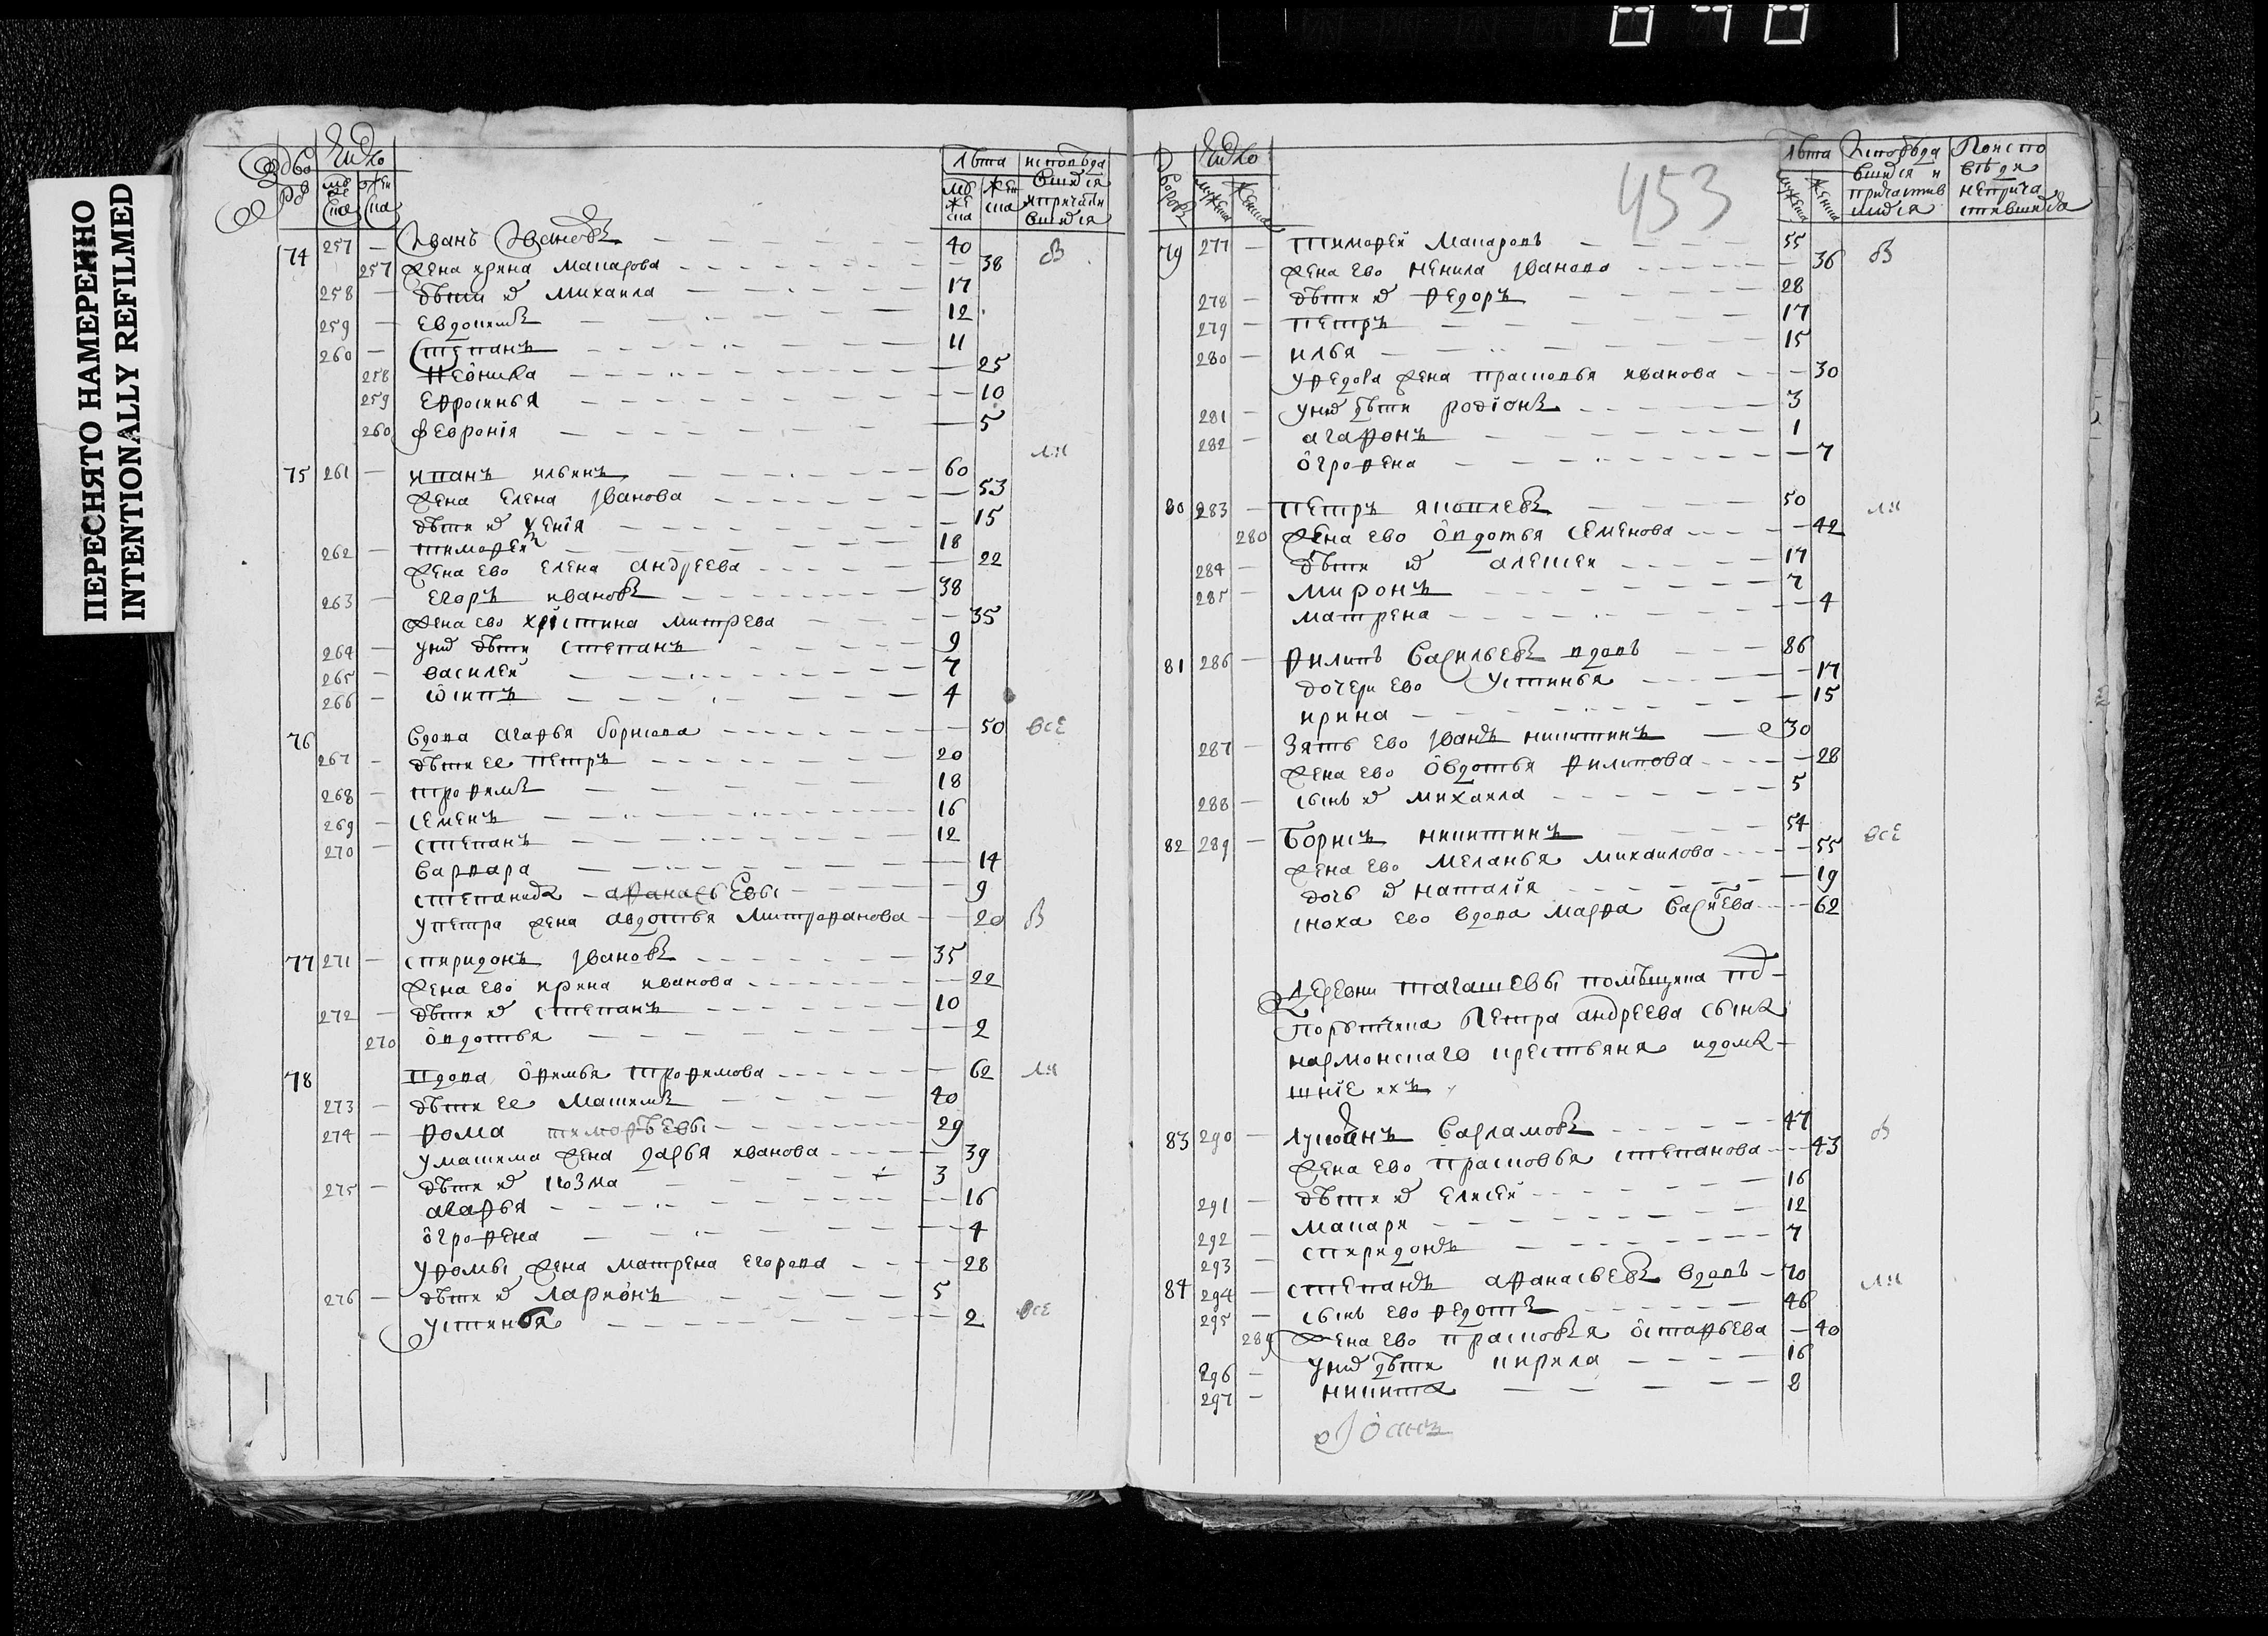 ПЕРЕСНЯТО НАМЕРЕННО
INTENTIONALLY REFILMED
Число
лѣта исповѣда
вшихся
74 257 — Иванъ Ивановъ 40 в
257 жена ирина макарова 38
258 — дѣти их михаила 17
259 — Евдокимъ 12
260 — Степанъ 11
258 Неонила 25
259 Ефросинья 10
260 февронiя 5
ли
75 261 — иванъ ильинъ 60
жена Елена Иванова 53
дѣти их 15
262 — тимофей 18
жена ево елена андреева 22
263 — Егоръ ивановъ 38
жена ево христина митрева 35
264 — у них дѣти степанъ 9
265 — василей 7
266 — осипъ 4
76 вдова агафья борисова 50 все
267 — дѣти ее петръ 20
268 — трофимъ 18
269 — семенъ 16
270 — степанъ 12
варвара 14
степанида — афанасьевы 9
у петра жена авдотья митрофанова 20 в
77 271 — спиридонъ Ивановъ 35
жена ево ирина иванова 22
272 — дѣти их степанъ 10
270 овдотья 2
78 вдова офимья трофимова 62 ли
273 — дѣти ее 40
274 — фома тимофѣевы 29
жена дарья иванова 39
275 — дѣти их козма 3
агафья 16
огрофена 4
у фомы жена матрена егорова 28
276 — дѣти их ларионъ 5
устинья 2 все
453
дворовъ Число мужеска женска лѣта мужеска женска исповѣда
вшихся и
причастив
шихся
По испо
вѣди
неприча
стившихся
79 277 — тимофей макаровъ 55 в
жена ево ненила Иванова 36
278 — дѣти их федоръ 28
279 — петръ 17
280 — илья 15
у федора жена прасковья иванова 30
281 — у них дѣти родiонъ 3
282 — агафонъ 1
огрофена 7
80 283 — петръ яковлевъ 50 ли
280 жена ево овдотья семенова 42
284 — дѣти их алексей 17
285 — миронъ 7
матрена 4
81 286 — филипъ васильевъ вдовъ 86
дочери ево устинья 17
ирина 15
287 — зять ево Иванъ никитинъ 30
жена ево овдотья филипова 28
288 — сынъ их михаила 5
82 289 — борисъ никитинъ 54 все
жена ево меланья михаилова 55
дочь их наталiя 19
сноха ево вдова марфа 62
деревни тагашевы помѣщика
порутчика Петра андреева сына
нармонскаго крестьяня и дома-
шнiе ихъ
83 290 — лукоянъ варламовъ 47 в
жена ево прасковья степанова 43
291 — дѣти их елисей 16
292 — макаръ 12
293 — спиридонъ 7
84 294 — степанъ афанасьевъ вдовъ 70 ли
295 — сынъ ево федотъ 46
289 жена ево прасковья остафьева 40
296 — у них дѣти кирила 16
297 — никита 8